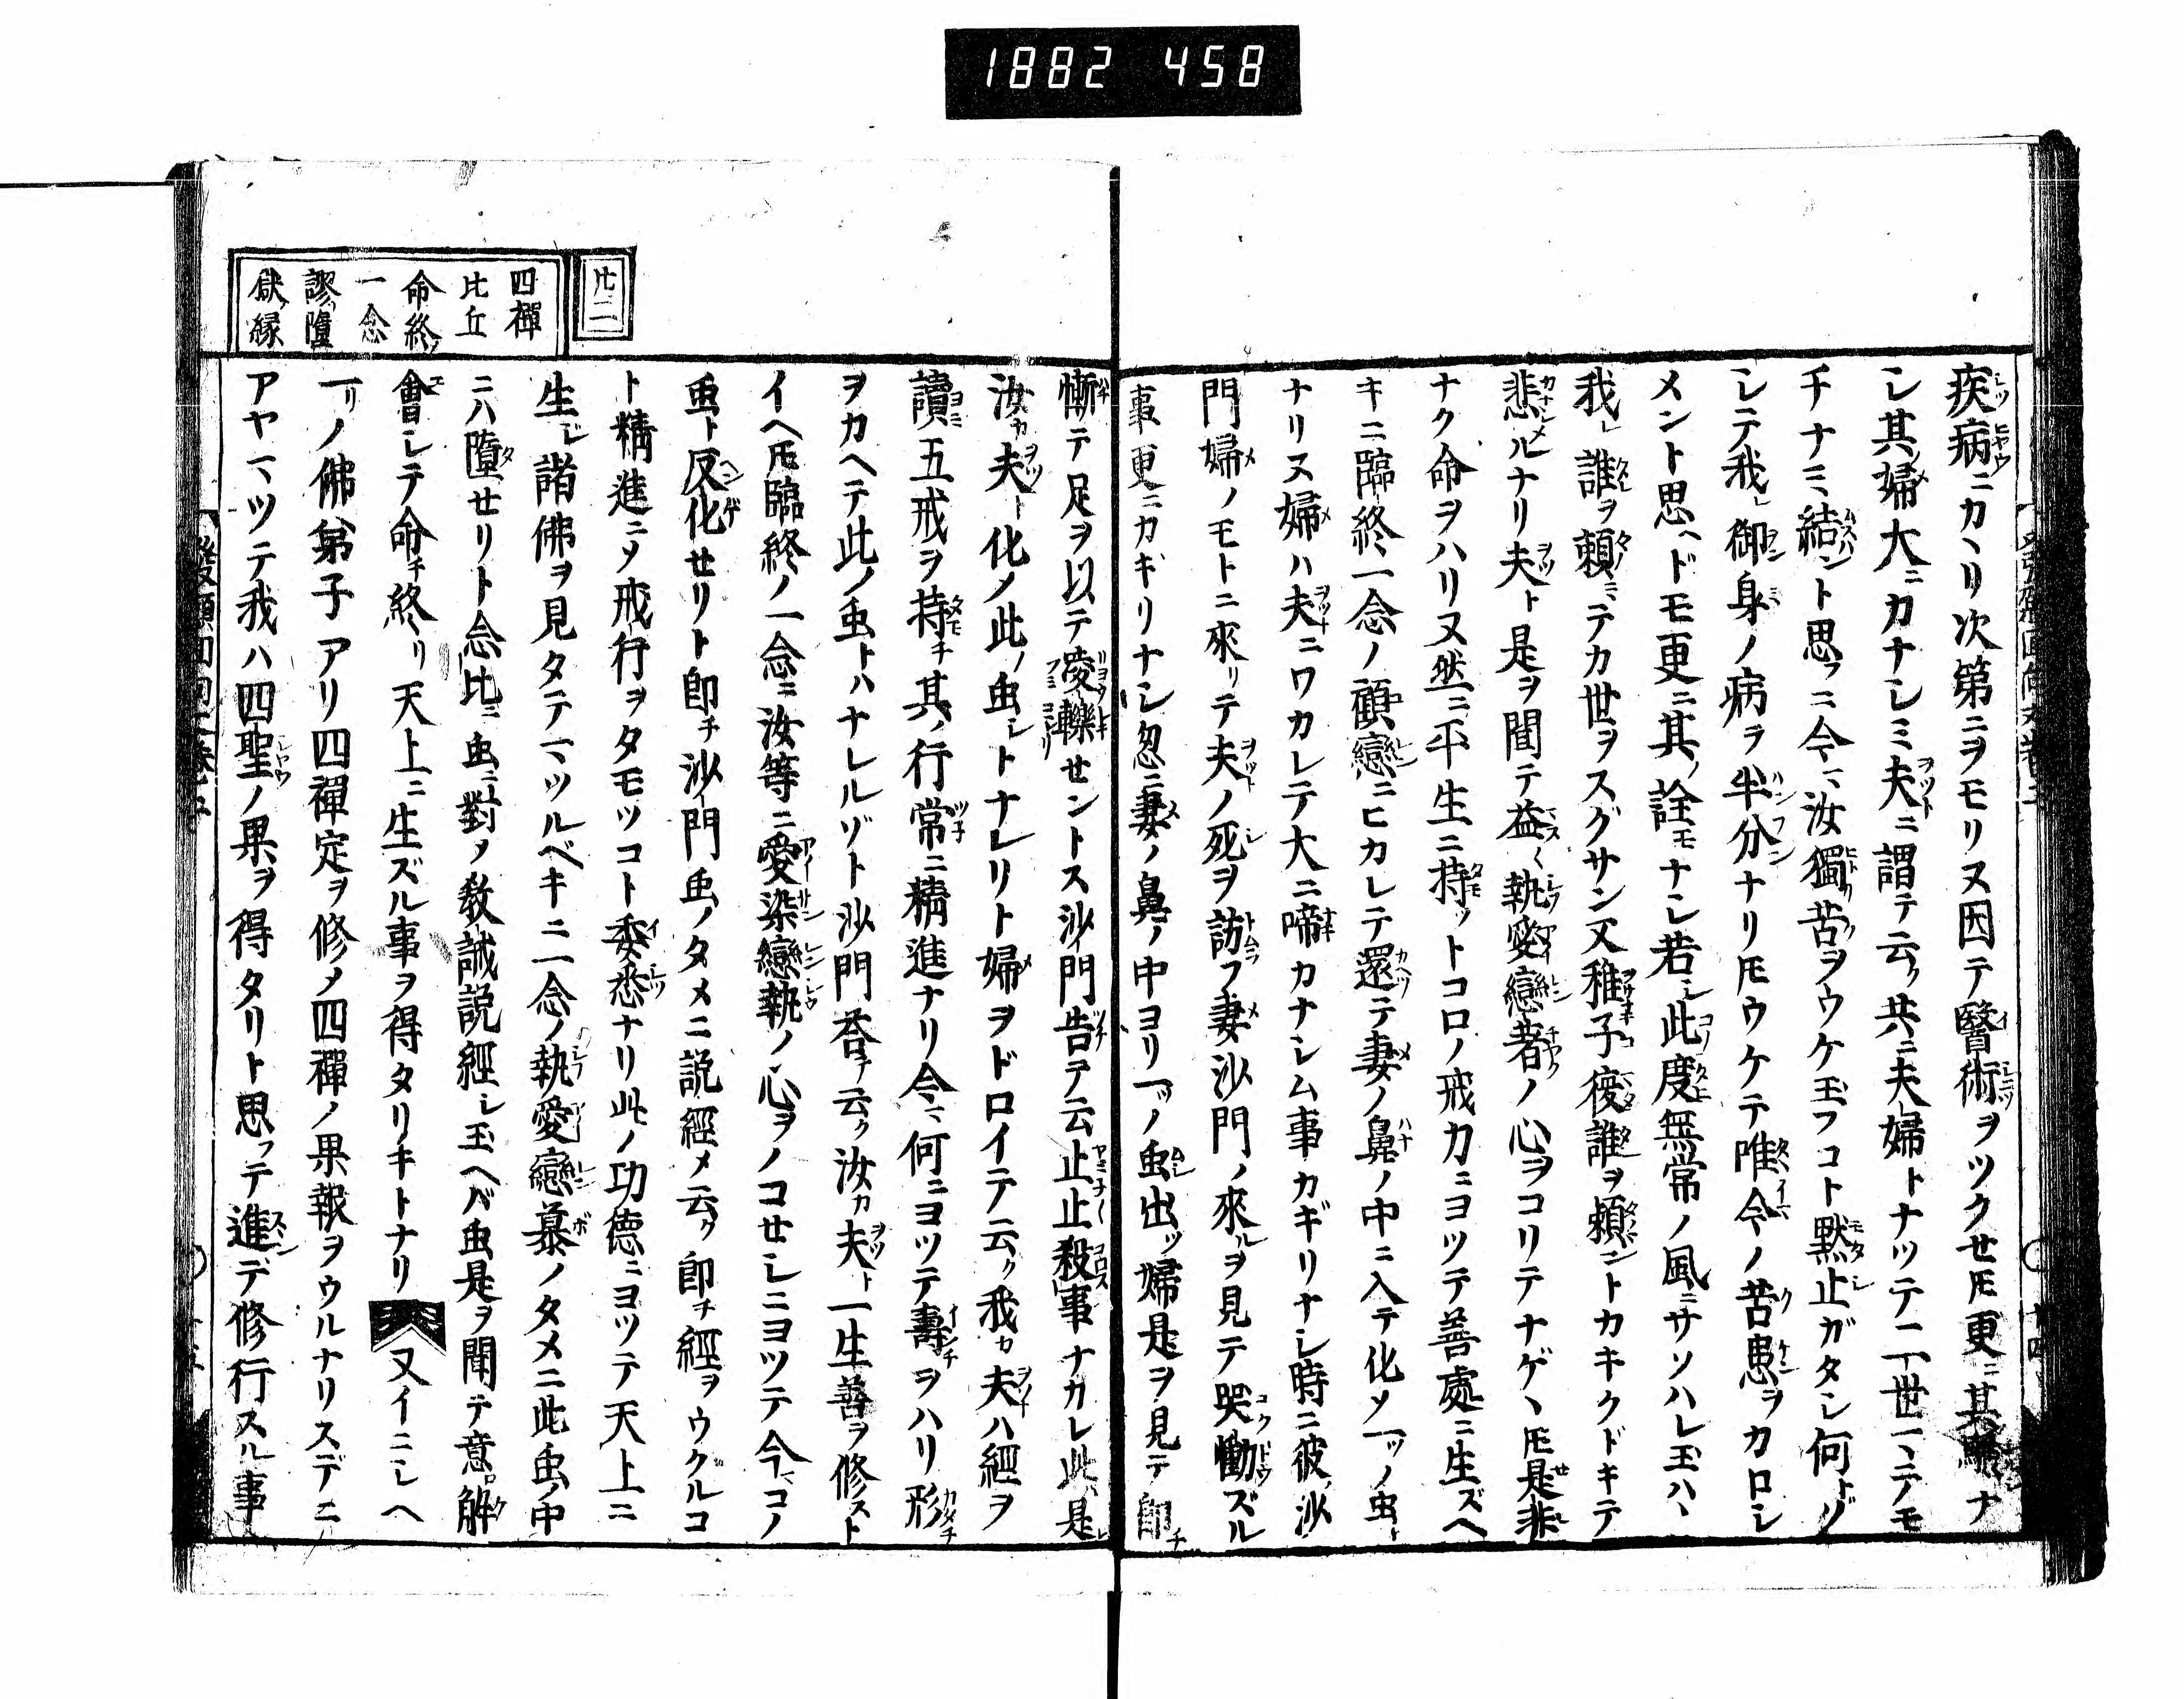 1882 458
疾病ニカヽリ次第ニヲモリヌ因テ醫術ヲツクセ𪜈更ニ其驗ナ
シ其婦大ニカナシミ夫ニ謂テ云ク共ニ夫婦トナツテ二世マテモ
チナミ結ント思フニ今マ汝獨苦ヲウケ玉フコト黙止ガタシ何トゾ
シテ我レ御身ノ病ヲ半分ナリ𪜈ウケテ唯今ノ苦患ヲカロシ
メント思ヘドモ更ニ其ノ詮モナシ若シ此度無常ノ風ニサソハレ玉ハヽ
我レ誰ヲ頼ミテカ世ヲスグサン又稚子後誰ヲ頼ントカキクドキテ
悲ルナリ夫ト是ヲ聞テ益〱執愛戀著ノ心ヲコリテナゲヽ𪜈是非
ナク命ヲハリヌ然ニ平生ニ持ツトコロノ戒力ニヨツテ善處ニ生ズベ
キニ臨終一念ノ顧戀ニヒカレテ還テ妻ノ鼻ノ中ニ入テ化メ一ツノ虫ト
ナリヌ婦ハ夫ニワカレテ大ニ啼カナシム事カギリナシ時ニ彼ノ沙
門婦ノモトニ來リテ夫ノ死ヲ訪フ妻沙門ノ來ルヲ見テ哭慟ズル
事更ニカギリナシ忽ニ妻ノ鼻ノ中ヨリ一ツノ虫出ツ婦是ヲ見テ即チ
慚テ足ヲ以テ㥄轢セントス沙門告テ云止止殺事ナカレ此レ是レ
汝カ夫ト化メ此ノ虫トナレリト婦ヲドロイテ云ク我カ夫ハ經ヲ
讀五戒ヲ持チ其ノ行常ニ精進ナリ今マ何ニヨツテ壽ヲハリ形
ヲカヘテ此ノ虫トハナレルゾト沙門荅テ云ク汝カ夫ト一生善ヲ修スト
イヘ𪜈臨終ノ一念ニ汝等ニ愛染戀執ノ心ヲノコセシニヨツテ今マコノ
虫ト反化せリト即チ沙門虫ノタメニ説經メ云ク即チ經ヲウクルコ
ト精進ニメ戒行ヲタモツコト委悉ナリ此ノ功德ニヨツテ天上ニ
生レ諸佛ヲ見タテマツルベキニ一念ノ執愛戀慕ノタメニ此虫ノ中
ニハ墮せリト念比ニ虫ニ對メ教誡説經シ玉ヘバ虫是ヲ聞テ意ロ解
會シテ命チ終リ天上ニ生ズル事ヲ得タリキトナリ 又イニシヘ
一リノ佛弟子アリ四禪定ヲ修メ四禪ノ果報ヲウルナリスデニ
アヤマツテ我ハ四聖ノ果ヲ得タリト思フテ進デ修行スル事
廿二
四禪
比丘
命終ノ
一念
謬墮
獄縁